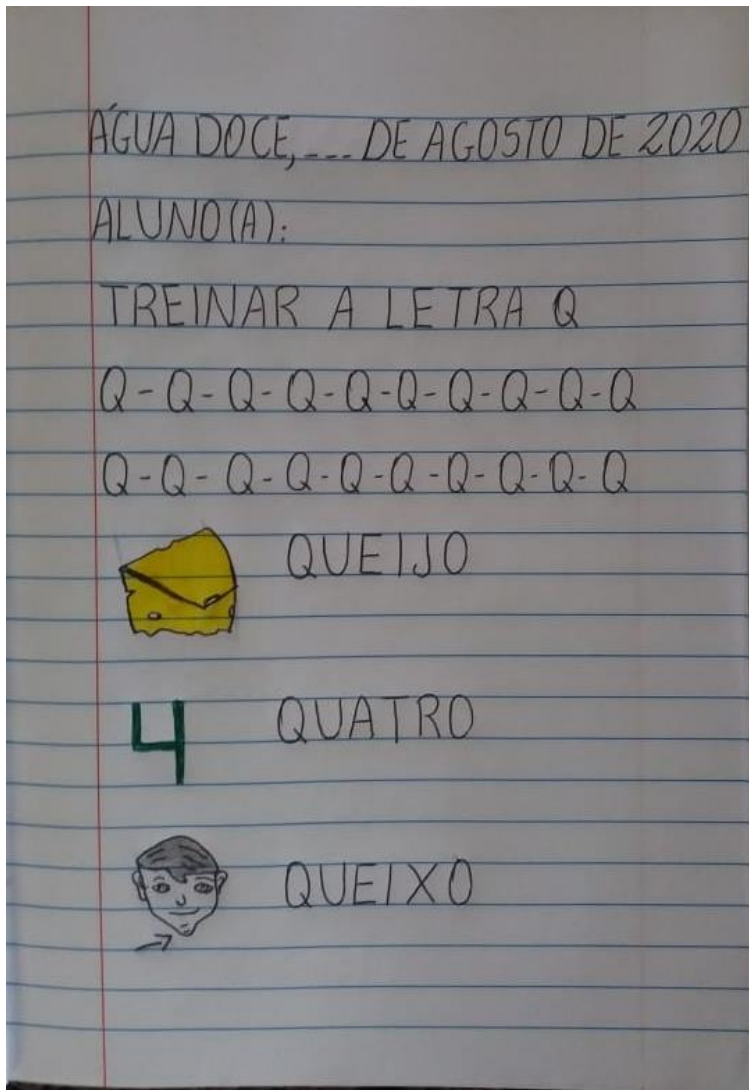 ÁGUA DOCE,--- DE AGOSTO DE 2020
ALUNO(A):
TREINAR A LETRA Q
Q-Q-Q-Q-Q-Q-Q-Q-Q-Q
Q-Q-Q-Q-Q-Q-Q-Q-Q-Q
QUEIJO
4 QUATRO
QUEIXO